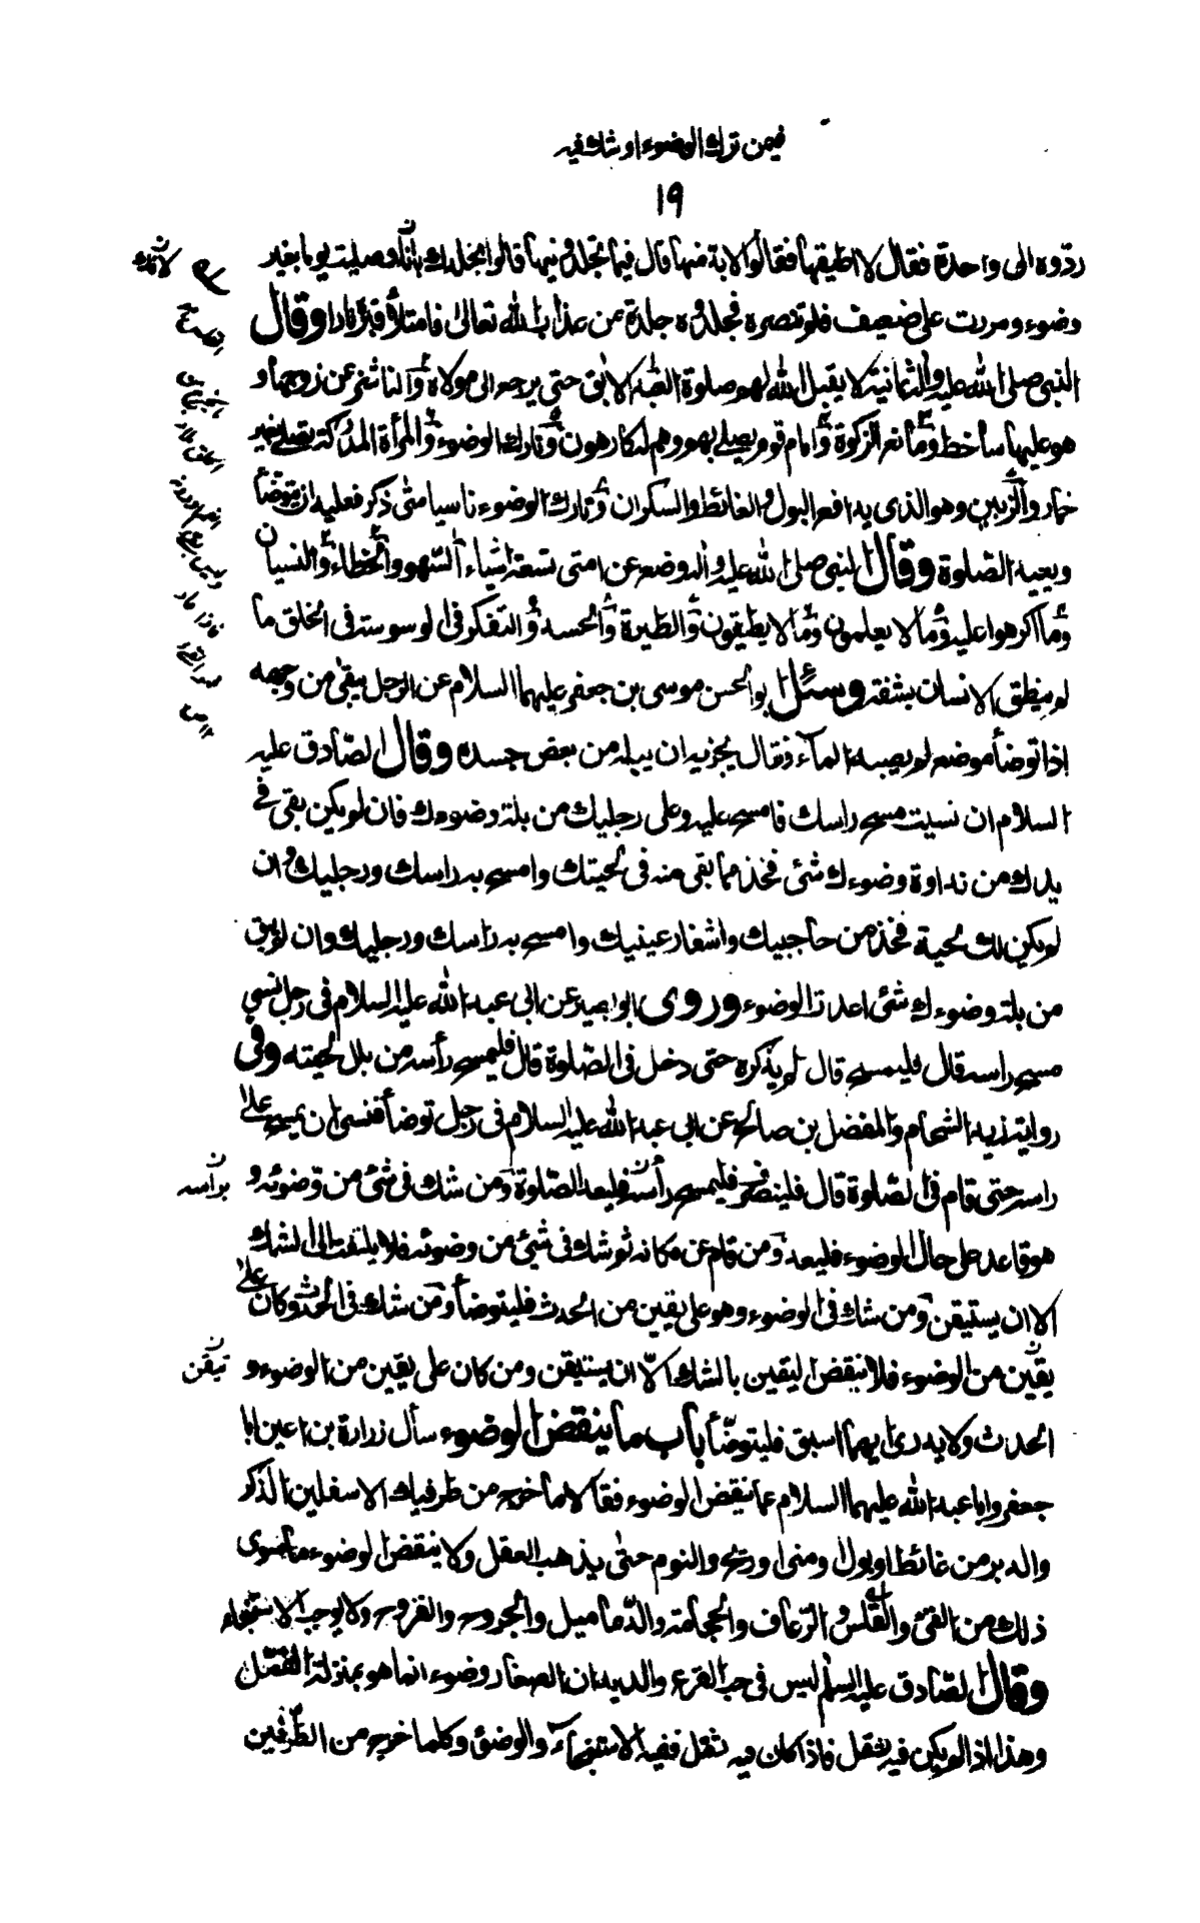 فيمن ترك الوضوء او شك فيه
١٩
ردّوه الى واحدة فقال لا اطيقها فقالوا لا بد منها قال فيما تجلدوني فيها قالوا نجلدك بانك صليت يوما بغير
وضوء ومررت على ضعيف فلم تنصره فجلدوه جلدة من عذاب الله تعالى فامتلأ قبره نارا وقال
النبي صلى الله عليه واله ثمانية لا يقبل الله لهم صلوة العبد الابق حتى يرجع الى مولاه والناشز عن زوجها و
هو عليها ساخط ومانع الزكوة وامام قوم يصلي بهم وهم له كارهون وتارك الوضوء والمرأة المدركة تصلي بغير
خمار والزبين وهو الذى يدافع البول والغائط والسكران وتارك الوضوء ناسيا متى ذكر فعليه ان يتوضأ
ويعيد الصّلوة وقال النبي صلى الله عليه واله وضع عن امتى تسعة اشياء السّهو والخطاء والنسيان
وما اكرهوا عليه وما لا يعلمون وما لا يطيقون والطيرة والحسد والتفكر فى الوسوسة فى الخلق ما
لم ينطق الانسان بشفة وسئل ابو الحسن موسى بن جعفر عليهما السلام عن الرجل يبقى من وجهه
اذا توضأ موضع لم يصبه الماء فقال يجزيه ان يبله من بعض جسده وقال الصّادق عليه
السلام ان نسيت مسح راسك فامسح عليه وعلى رجليك من بلة وضوءك فان لم يكن بقى فى
يدك من نداوة وضوءك شئ فخذ مما بقى منه فى لحيتك وامسح به راسك ورجليك وان
لم يكن لك لحية فخذ من حاجبيك واشفار عينيك وامسح به راسك ورجليك وان لم يبق
من بلة وضوءك شئ اعدت الوضوء وروى ابو بصير عن ابى عبد الله عليه السلام فى رجل نسي
مسح راسه قال فليمسح قال لم يذكره حتى دخل فى الصّلوة قال فليمسح رأسه من بلل لحيته وفى
رواية زيد الشحام والمفضل بن صالح عن ابى عبد الله عليه السلام فى رجل توضأ فنسى ان يمسح على
راسه حتى قام فى الصّلوة قال فلينصرف فليمسح رأسه فليعد الصّلوة ومن شك فى شئ من وضوئه و
هو قاعد على حال الوضوء فليعد ومن قام عن مكانه ثم شك فى شئ من وضوئه فلا يلتفت الى الشك
الا ان يستيقن ومن شك فى الوضوء وهو على يقين من الحدث فليتوضأ ومن شك فى الحدث وكان على
يقين من الوضوء فلا ينقض اليقين بالشك الّا ان يستيقن ومن كان على يقين من الوضوء و
الحدث ولا يدرى ايهما اسبق فليتوضّأ باب ما ينقض الوضوء سأل زرارة بن اعين ابا
جعفر وابا عبد الله عليهما السلام عما ينقض الوضوء فقالا ما خرج من طرفيك الاسفلين الذكر
والدبر من غائط او بول او منى او ريح والنوم حتى يذهب العقل ولا ينقض الوضوء ما سوى
ذلك من القئ والقلس والرّعاف والحجامة والدّماميل والجروح والقروح ولا يوجب الاستنجاء
وقال الصّادق عليه السلم ليس فى حب القرع والديدان الصغار وضوء انما هو بمنزلة القمّل
وهذا اذا لم يكن فيه ثقل فاذا كان فيه ثقل ففيه الاستنجاء والوضوء وكلما خرج من الطّرفين
برأسه
تيقن